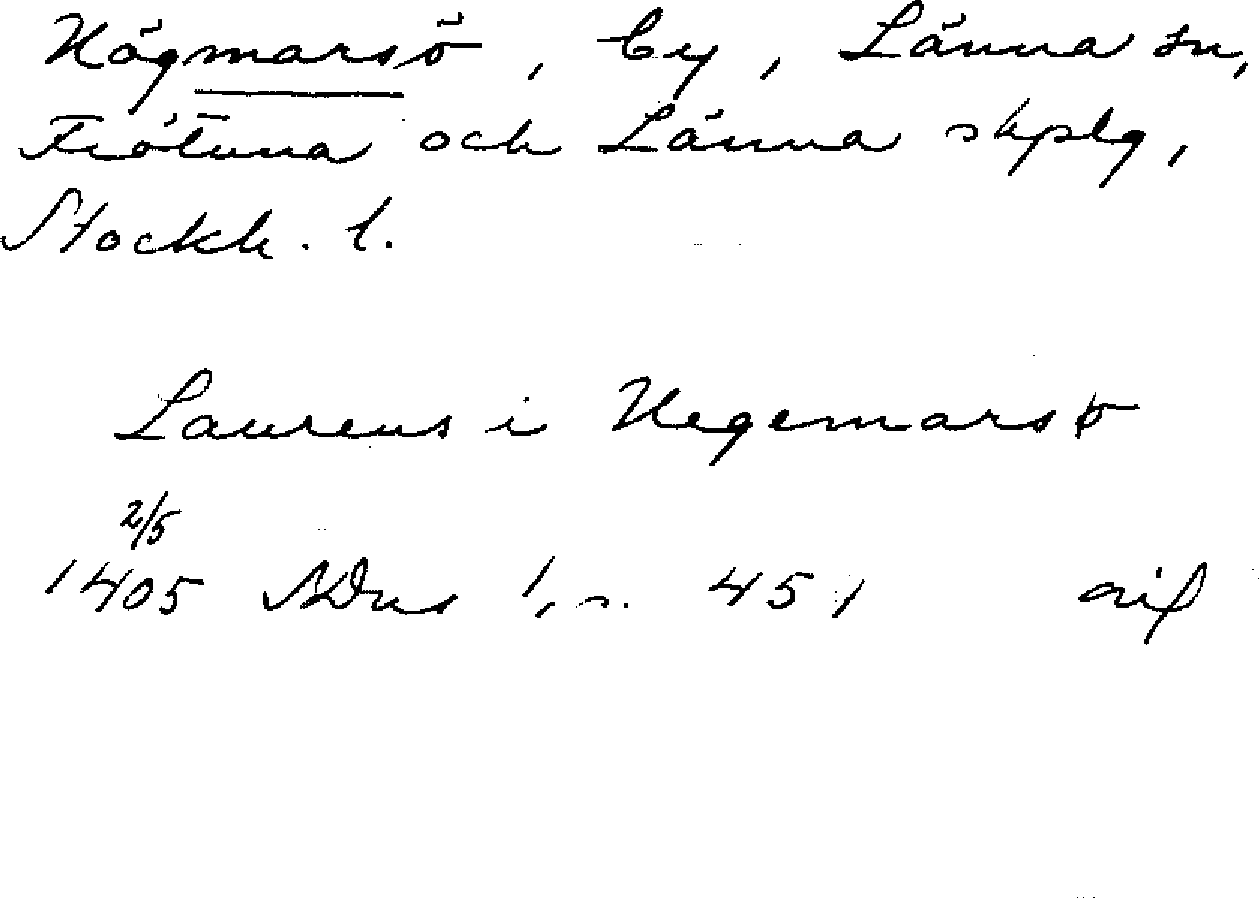 Högmarsö, by, Länna sn,
Frötuna och Länna skplg,
Stockh. l.
Laurens i Hegemarsø
2/5
1405 SDns 1, s. 451 orif